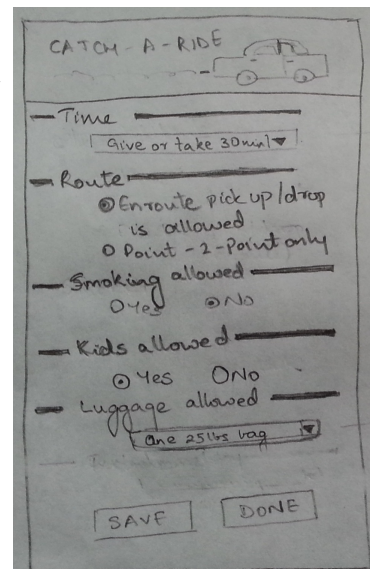 CATCH - A - RIDE
Time
Give or take 30min
Route
Enroute pick up/drop
is allowed
Point - 2 - Point only
Smoking allowed
Yes No
Kids allowed
Yes No
Luggage allowed
One 25lbs bag
SAVE DONE